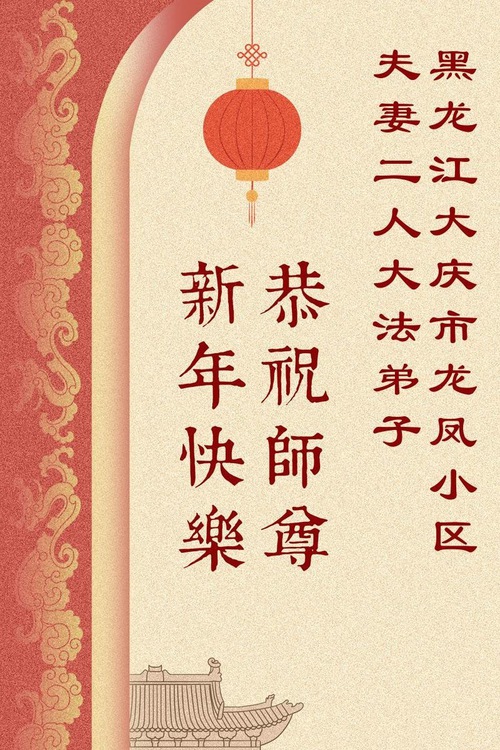 黑龙江大庆市龙凤小区
夫妻二人大法弟子
恭祝師尊
新年快樂